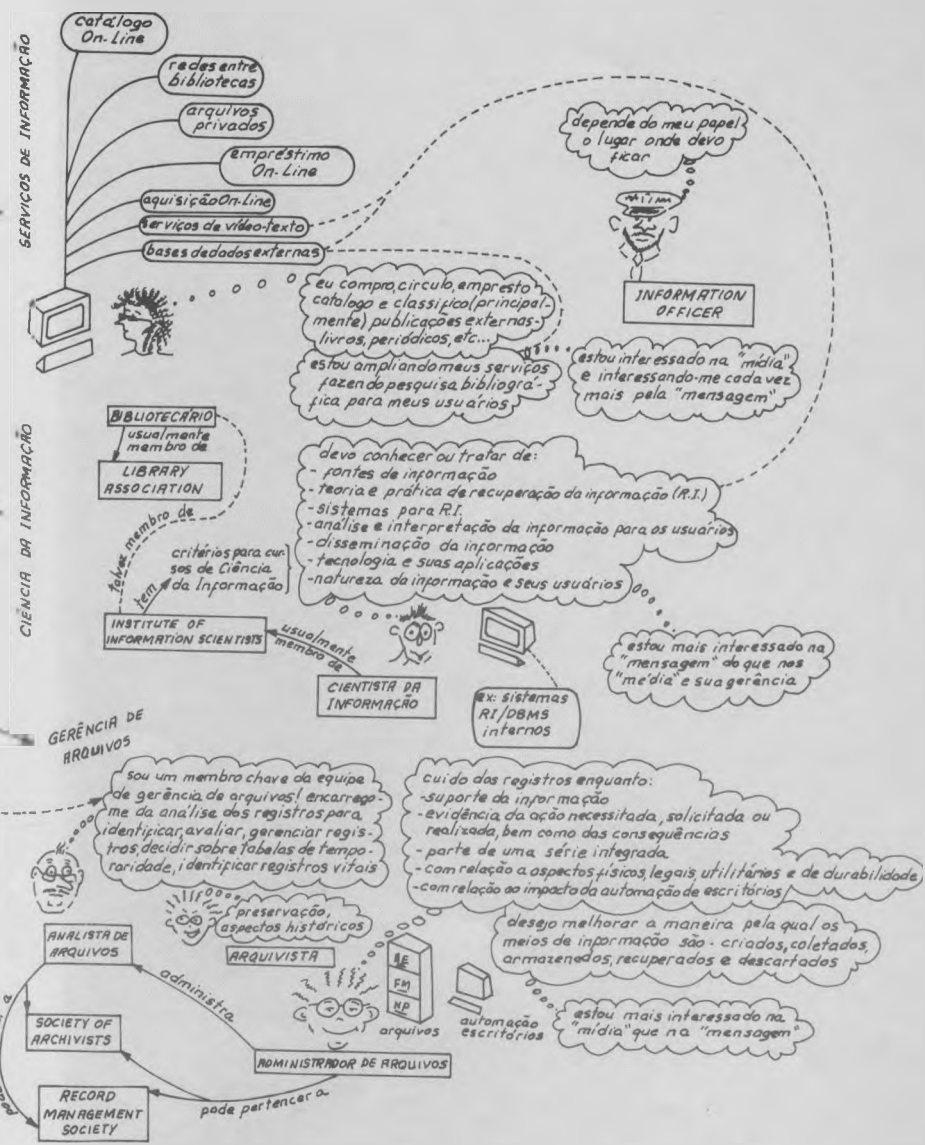 SERVIÇOS DE INFORMAÇÃO
catálogo
On-Line
redes entre
bibliotecas
arquivos
privados
empréstimo
On-Line
aquisição On-Line
serviços de vídeo-texto
bases de dados externas
depende do meu papel
o lugar onde devo
ficar
INFORMATION
OFFICER
eu compro, circulo, empresto
catalogo e classifico (principal-
mente) publicações externas-
livros, periódicos, etc...
estou ampliando meus serviços
fazendo pesquisa bibliográ-
fica para meus usuários
estou interessado na "mídia"
e interessando-me cada vez
mais pela "mensagem"
CIENCIA DA INFORMAÇÃO
BIBLIOTECÁRIO
usualmente
membro de
LIBRARY
ASSOCIATION
talvez membro de
tem
critérios para cur-
sos de Ciência
da Informação
INSTITUTE OF
INFORMATION SCIENTISTS
usualmente
membro de
CIENTISTA DA
INFORMAÇÃO
devo conhecer ou tratar de:
- fontes de informação
- teoria e prática de recuperação da informação (R.I.)
- sistemas para R.I.
- análise e interpretação da informação para os usuários
- disseminação da informação
- tecnologia e suas aplicações
- natureza da informação e seus usuários
ex: sistemas
RI/DBMS
internos
estou mais interessado na
"mensagem" do que nos
"média" e sua gerência
GERÊNCIA DE
ARQUIVOS
sou um membro chave da equipe
de gerência de arquivos! encarrego-
me da análise dos registros para
identificar, avaliar, gerenciar regis-
tros, decidir sobre tabelas de tempo-
raridade, identificar registros vitais
preservação,
aspectos históricos
ARQUIVISTA
ANALISTA DE
ARQUIVOS
administra
SOCIETY OF
ARCHIVISTS
RECORD
MANAGEMENT
SOCIETY
pode pertencer a
ADMINISTRADOR DE ARQUIVOS
cuido dos registros enquanto:
- suporte da informação
- evidência da ação necessitada, solicitada ou
realizada, bem como das consequências
- parte de uma série integrada
- com relação a aspectos físicos, legais, utilitários e de durabilidade
- com relação ao impacto da automação de escritórios
desejo melhorar a maneira pela qual os
meios de informação são - criados, coletados,
armazenados, recuperados e descartados
AE
FM
NP
arquivos
automação
escritórios
estou mais interessado na
"mídia" que na "mensagem"